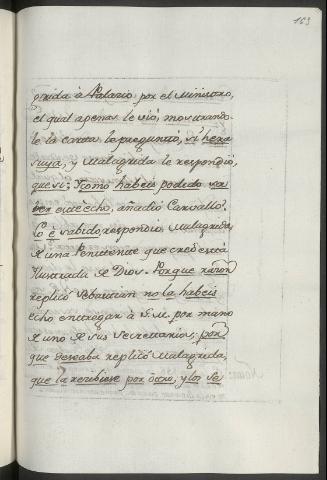 163
querida à Palazio por el Ministro,
el qual apenas le viò, mostrando-
le la carta le preguntò, si hera
suya, y Malagrida le respondiò,
que si: Y como habeis podido sa-
ber este echo, añadiò Carvallo?
Lo è sabido, respondio Malagrida,
de una Penitente que cred està
Ilustrada de Dios. Porque razon
replicò Sebastian no la habeis
echo entregar à S. M. por mano
de uno de sus Secretarios; por
que deseaba replicò Malagrida,
que la recibiese por otro, y los Se